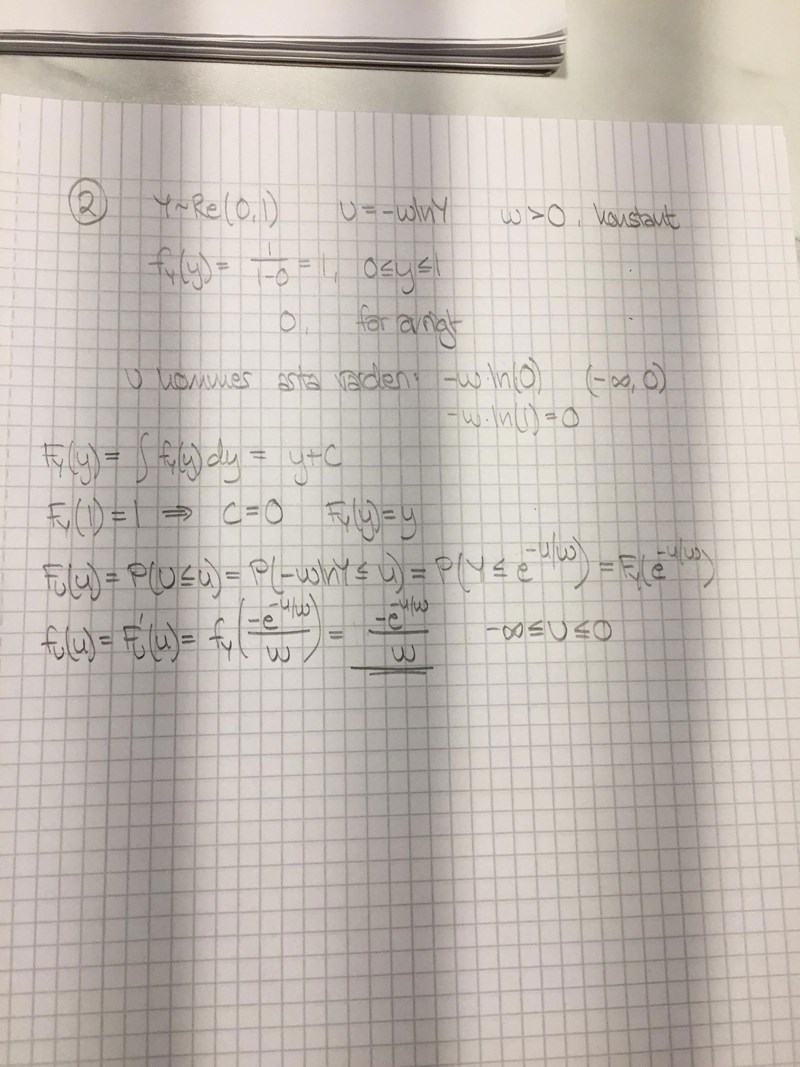 ② Y~Re(0,1) U=-wlnY w>0, konstant
f_Y(y)= 1/(1-0) =1, 0≤y≤1
0, för övrigt
U kommes anta värden: -w·ln(0) (-∞,0)
-w·ln(1)=0
F_Y(y)= ∫ f_Y(y)dy = y+C
F_Y(1)=1 ⇒ C=0 F_Y(y)=y
F_U(u)=P(U≤u)=P(-wlnY≤u)=P(Y≤e^{-u/w})=F_Y(e^{-u/w})
f_U(u)=F_U'(u)=f_Y(-e^{-u/w}/w)= -e^{-u/w}/w -∞≤U≤0